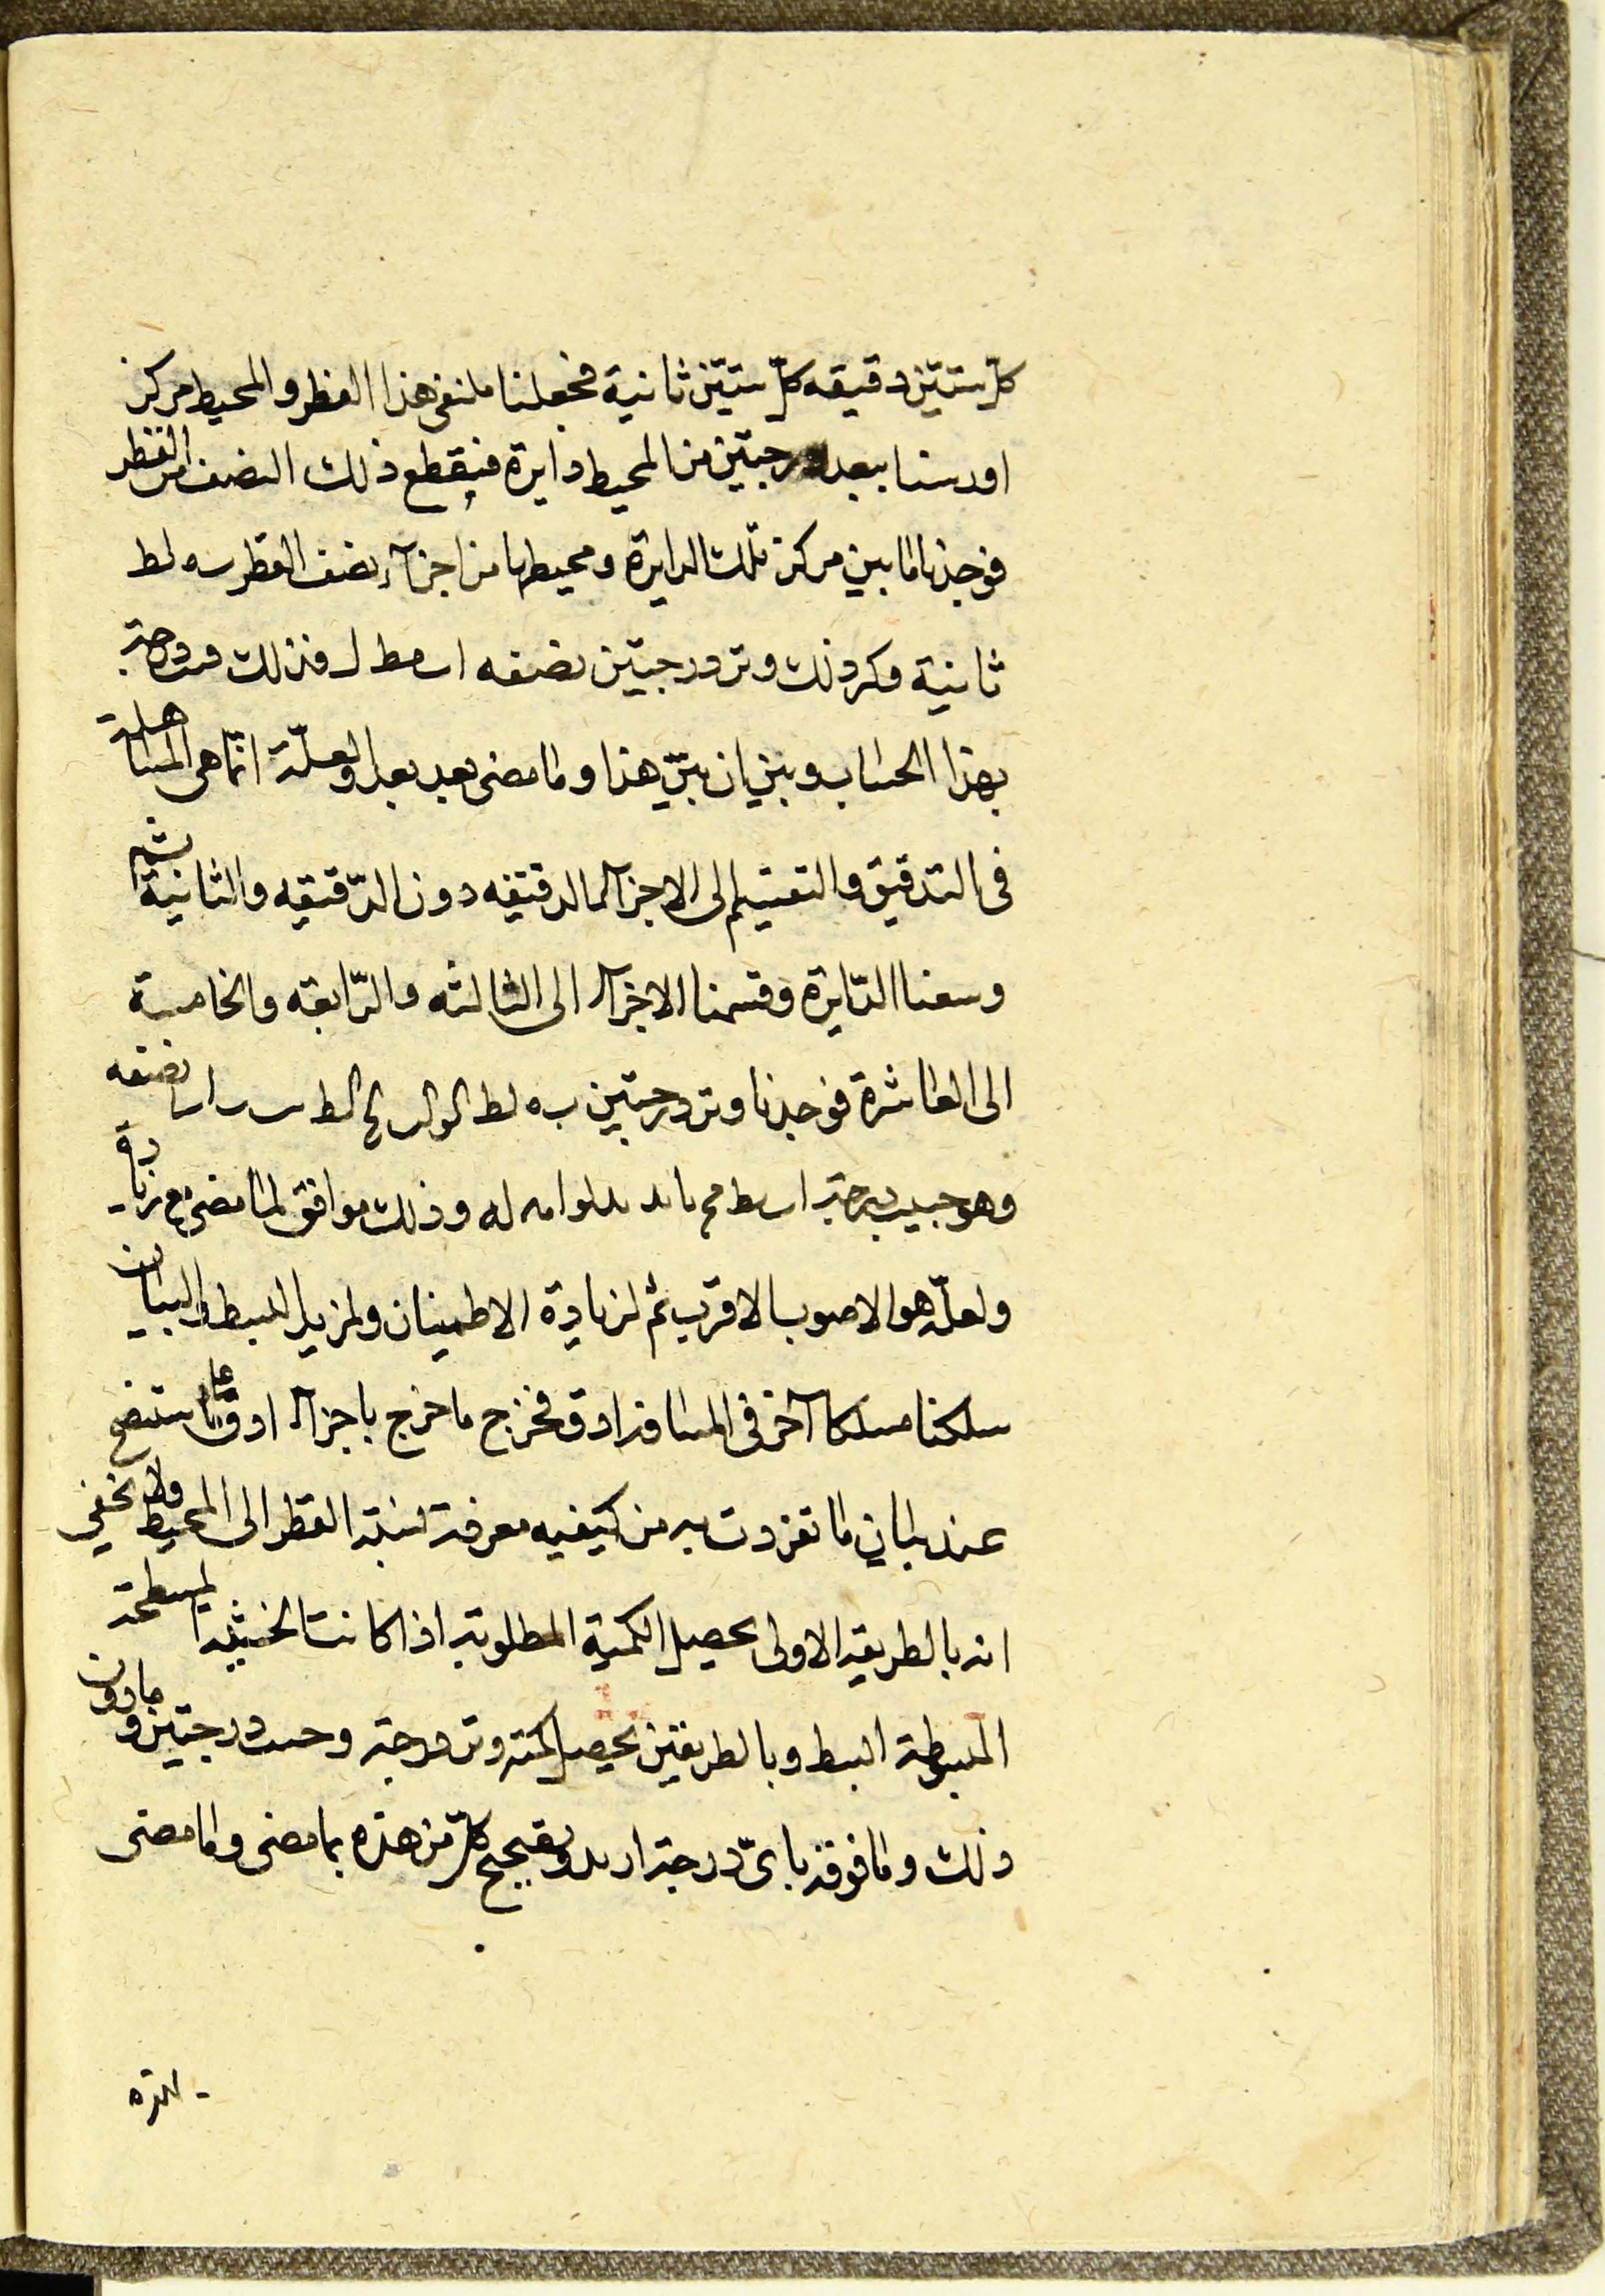 كل ستين دقيقه كل ستين ثانية فجعلنا ملتقى هذا القطر والمحيط مركز
اورسنا ببعد درجتين من المحيط دايرة فيقطع ذلك النصف من القطر
فوجدنا ما بين مركز تلك الدايرة ومحيطها من اجزآء نصف القطر ب ه لط
ثانية وكر ذلك وتر درجتين نصفه ا ب مط ل فذلك درجة
بهذا الحساب وبين ان بين هذا وما مضى بعد بعد ولعلّة انّما هى المساهلة
فى التدقيق والتقسيم الى الاجزآء الدقيقه دون الدّقيقه والثانية ثم
وسعنا الدّايرة وقسمنا الاجزآء الى الثالثه والرّابعه والخامسة
الى العاشرة فوجدنا وتر درجتين ب ه لط نصفه
وهو جيب درجة ا ب مط وذلك موافق لما مضى مع زيادة
ولعلّه هو الاصوب الاقرب ثم لزيادة الاطمينان ولمزيد البسط والبيان
سلكنا مسلكا آخر فى المسافة ادق فخرج ما خرج باجزآء ادق على ما ستضح
عند بيان ما تفردت به من كيفيه معرفة نسبة القطر الى المحيط ولا يخفى
انه بالطريقه الاولى يحصل الكمية المطلوبة اذا كانت الخشبة المسطحة
المبسوطة ابسط وبالطريقين يحصل كمية وتر درجة وحسب درجتين وما دون
ذلك وما فوقه باىّ درجة اريد وتصحيح كل من هذه بما مضى وما مضى